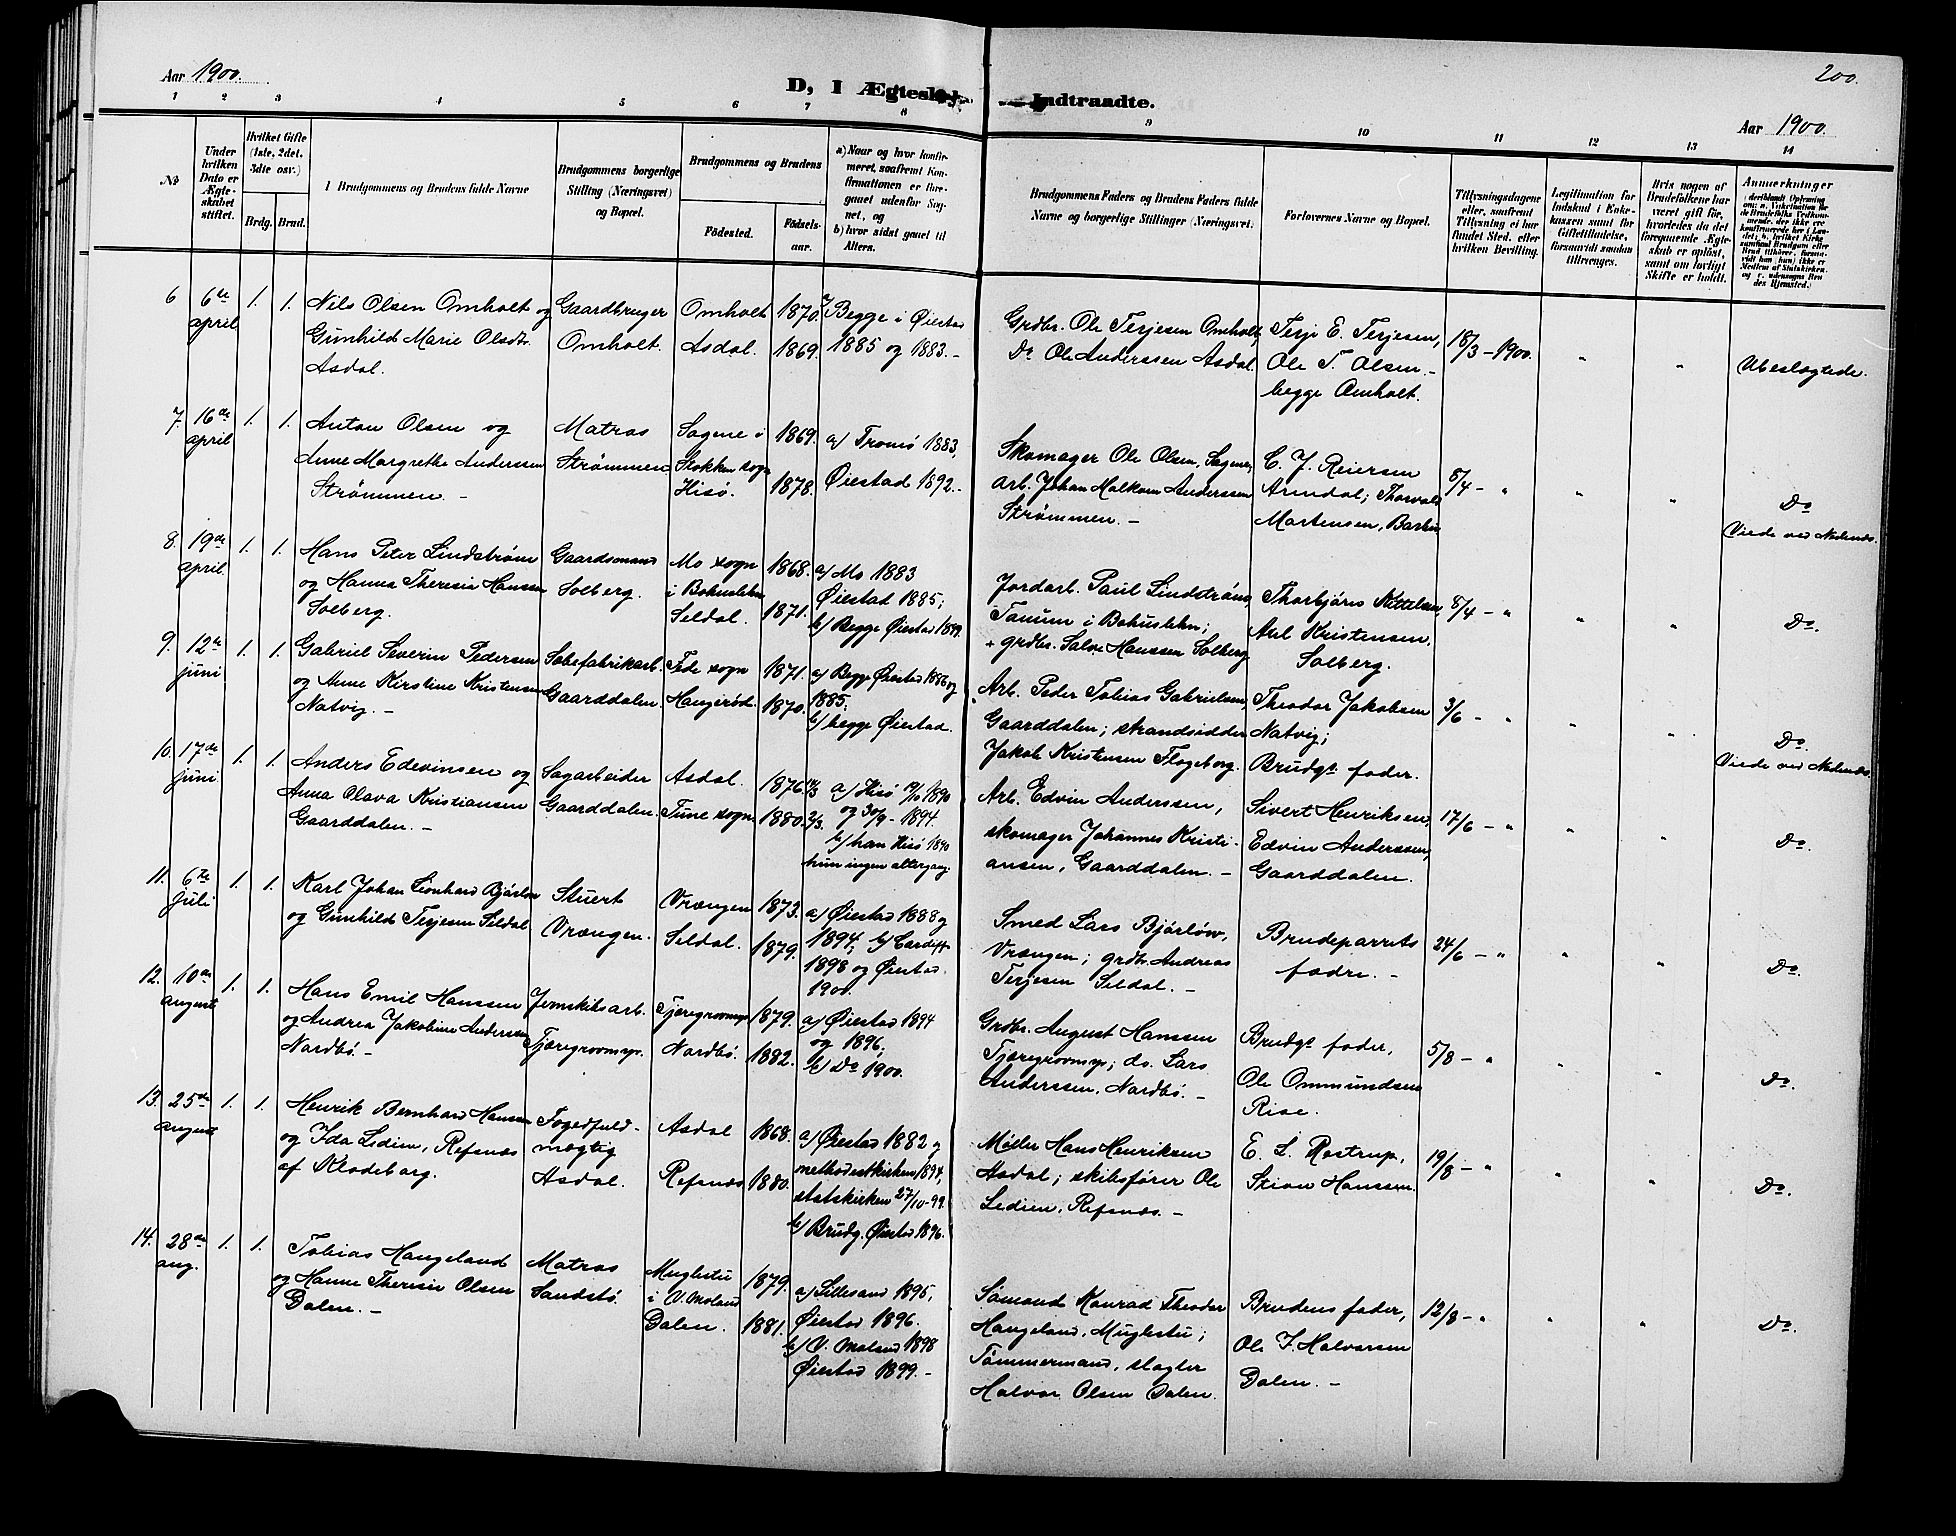 Aar 1900.
D, I Ægtesk
Indtraadte.
200.
Aar 1900.
1 2 3 4 5 6 7 8 9 10 11 12 13 14
№
Under hvilken Dato er Ægteskabet stiftet.
Hvilket Gifte (1ste, 2det, 3die osv.)
Brdg. Brud.
Brudgommens og Brudens fulde Navne
Brudgommens borgerlige Stilling (Næringsvei) og Bopæl.
Brudgommens og Brudens
Födested. Födselsaar.
a) Naar og hvor konfirmeret, saafremt Konfirmationen er foregaaet udenfor Sognet, og
b) hvor sidst gaaet til Alters.
Brudgommens Faders og Brudens Faders fulde Navne og borgerlige Stillinger (Næringsvei).
Forlovernes Navne og Bopæl.
Tillysningsdagene eller, saafremt Tillysning ei har fundet Sted, efter hvilken Bevilling.
Legitimation for Indskud i Enkekassen samt for Giftetilladelse, forsaavidt saadan tiltrænges.
Hvis nogen af Brudefolkene har været gift før, hvorledes da det foregaaende Ægteskab er opløst, samt om lovligt Skifte er holdt.
Anmerkninger
6 6te april 1. 1.
Nils Olsen Omholt og
Gunhild Marie Olsdtr.
Asdal.
Gaardbruger
Omholt.
Omholt 1870.
Asdal. 1869.
Begge i Øiestad
1885 og 1883.-
Grdbr. Ole Terjesen Omholt,
Do Ole Anderssen Asdal.
Terje E. Terjesen,
Ole T. Olsen.-
begge Omholt.
18/3 - 1900.
" "
Ubeslægtede.
7. 16de april 1. 1.
Anton Olsen og
Anne Margrethe Anderssen
Strømmen. -
Matros
Strømmen
Sagene i 1869.
Stokken sogn
Hisø. 1878.
a) Tromø 1883,
Øiestad 1892.-
Skomager Ole Olsen, Sagene,
arb. Johan Malkom Anderssen
Strømmen. -
C. J. Reiersen
Arndal; Thorvald
Mortensen, Barbu
8/4 - "
" "
Do
Viede ved Nedenæs.
8. 19de april. 1. 1.
Hans Peter Lindstrøm
og Hanna Theresia Hanssen
Solberg.
Gaardsmand
Solberg.
Mo sogn 1868.
i Bohuslehn,
Seldal. 1871.
a) Mo 1883
Øiestad 1885;
b) Begge Øiestad 1899.
Jordarb. Paul Lindstrøm,
Tanum i Bohuslehn;
+ grdbr. Salve Hanssen Solberg
Thorbjørn Kittelsen,
Axel Kristensen,
Solberg.
8/4 - "
" "
Do.
9. 12te juni 1. 1.
Gabriel Severin Pedersen
og Anne Kirstine Kristensen
Natvig. -
Gaarddalen.
Fede sogn 1871.
Haugerød. 1870.
a) Begge Øiestad 1886 og
1885;
b) begge Øiestad.
Arb. Peder Tobias Gabrielsen,
Gaarddalen; strandsidder
Jakob Kristensen Flageborg.
Theodor Jakobsen
Natvig;
Brudgs fader.
3/6 - "
" "
Do.
Viede ved Nedenæs.
10. 17de juni 1. 1.
Anders Edevinsen og
Anna Olava Kristiansen
Gaarddalen. -
Sagarbeider
Gaarddalen.
Asdal. 1876.
Tune sogn. 1880. 2/3.
a) Hisø 1890
og 30/9 - 1894.
b) han Hisø 1890
hun ingen altergang.
Arb. Edvin Anderssen,
skomager Johannes Kristi-
ansen, Gaarddalen. -
Sivert Henriksen,
Edvin Anderssen,
Gaarddalen.
17/6 - "
" "
Do.
11. 6te juli 1. 1.
Karl Johan Leonhard Bjørløw
og Gunhild Terjesen Seldal
Stuert
Vrængen.
Vrængen 1873.
Seldal. 1879.
a) Øiestad 1888 og
1894; b) Cardiff
1898 og Øiestad
1900.
Smed Lars Bjørløw,
Vrængen; grdbr. Andreas
Terjesen Seldal. -
Brudeparrets
fædre. -
24/6 - "
" "
Do.
12. 10de august 1. 1.
Hans Emil Hanssen
og Andrea Jakobine Anderssen
Nardbø. -
Jernskibsarb.
Tjæregrovmyr.
Tjæregrovmyr 1879.
Nardbø. 1882.
a) Øiestad 1894
og 1896.
b) Do 1900.
Grdbr. August Hanssen
Tjæregrovmyr; do. Lars
Anderssen, Nardbø. -
Brudgs fader,
Ole Ommundsen
Rise.
5/8 - "
" "
Do.
13. 25de august 1. 1.
Henrik Bernhard Hanssen
og Ida Lidien, Refsnæs
af Klodeborg.
Fogedfuld-
mægtig
Asdal.
Asdal 1868.
Refsnæs 1880.
a) Øiestad 1882 og
methodistkirken 1894,
statskirken 27/10-99.
b) Brudg. Øiestad 1896.
Møller Hans Henriksen
Asdal; skibsfører Ole
Lidien, Refsnæs. -
E. L. Rostrup,
Stian Hanssen.
19/8 - "
" "
Do.
14. 28de aug. 1. 1.
Tobias Haugeland
og Hanne Theresie Olsen
Dalen. -
Matros
Sandstø.
Muglestu 1879.
i V. Moland
Dalen. 1881.
a) Lillesand 1895,
Øiestad 1896.
b) V. Moland 1898
Øiestad 1899. -
Sømand Konrad Theodor
Haugeland, Muglestu;
Tømmermand, slagter
Halvor Olsen Dalen.
Brudens fader,
Ole J. Halvorsen
Dalen. -
12/8 - "
" "
Do.